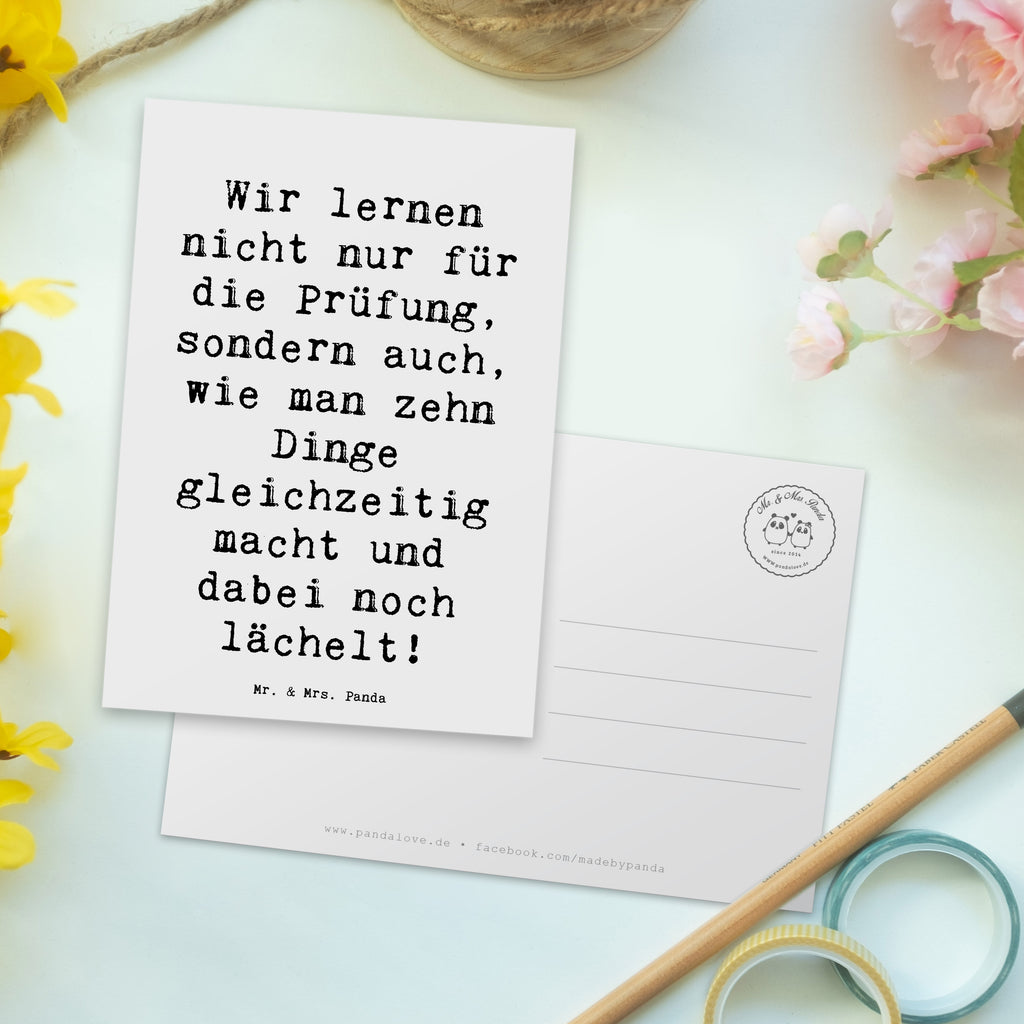 Wir lernen
nicht nur für
die Prüfung,
sondern auch,
wie man zehn
Dinge
gleichzeitig
macht und
dabei noch
lächelt!
Mr. & Mrs. Panda
Mr. & Mrs. Panda
since 2014
www.pandalove.de
www.pandalove.de • facebook.com/madebypanda
PITT PASTEL
FABER-CASTELL